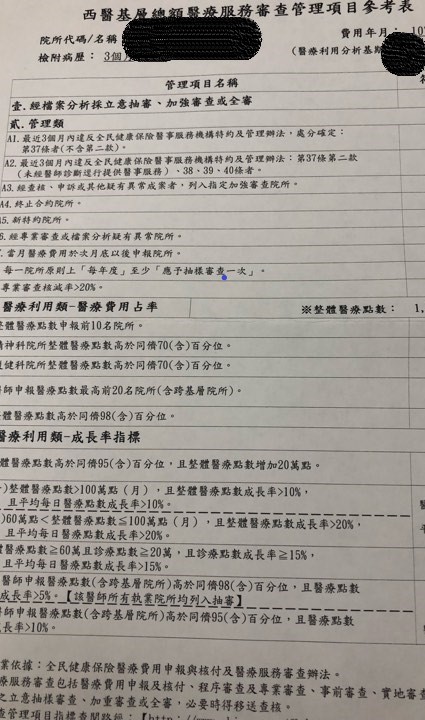 西醫基層總額醫療服務審查管理項目參考表
院所代碼/名稱
費用年月
檢附病歷： 3個月
(醫療利用分析基期
管理項目名稱
壹．經檔案分析採立意抽審、加強審查或全審
貳．管理類
A1．最近3個月內違反全民健康保險醫事服務機構特約及管理辦法，處分確定：
第37條者(不含第二款)。
A2．最近3個月內違反全民健康保險醫事服務機構特約及管理辦法：第37條第二款
(未經醫師診斷逕行提供醫事服務)、38、39、40條者。
A3．經查核、申訴或其他疑有異常成案者，列入指定加強審查院所。
A4．終止合約院所。
A5．新特約院所。
6．經專業審查或檔案分析疑有異常院所。
當月醫療費用於次月底以後申報院所。
每一院所原則上「每年度」至少「應予抽樣審查一次」。
專業審查核減率>20%。
醫療利用類-醫療費用占率
※整體醫療點數： 1,
整體醫療點數申報前10名院所。
精神科院所整體醫療點數高於同儕70(含)百分位。
復健科院所整體醫療點數高於同儕70(含)百分位。
醫師申報醫療點數最高前20名院所(含跨基層院所)。
整體醫療點數高於同儕98(含)百分位。
醫療利用類-成長率指標
體醫療點數高於同儕95(含)百分位，且整體醫療點數增加20萬點。
)整體醫療點數>100萬點（月），且整體醫療點數成長率>10%，
且平均每日醫療點數成長率>10%。
)60萬點<整體醫療點數≦100萬點（月），且整體醫療點數成長率>20%，
且平均每日醫療點數成長率>20%。
體醫療點數≧60萬且診療點數≧20萬，且診療點數成長率≧15%，
且平均每日醫療點數成長率>15%。
醫師申報醫療點數(含跨基層院所)高於同儕98(含)百分位，且醫療點數
成長率>5%。【該醫師所有執業院所均列入抽審】
醫師申報醫療點數(含跨基層院所)高於同儕95(含)百分位，且醫療點數
長率>10%。
業依據：全民健康保險醫療費用申報與核付及醫療服務審查辦法。
療服務審查包括醫療費用申報及核付、程序審查及專業審查、事前審查、實地審查
之立意抽樣審查、加重審查或全審，必要時得移送查核。
查管理項目指標查閱路徑：【http://